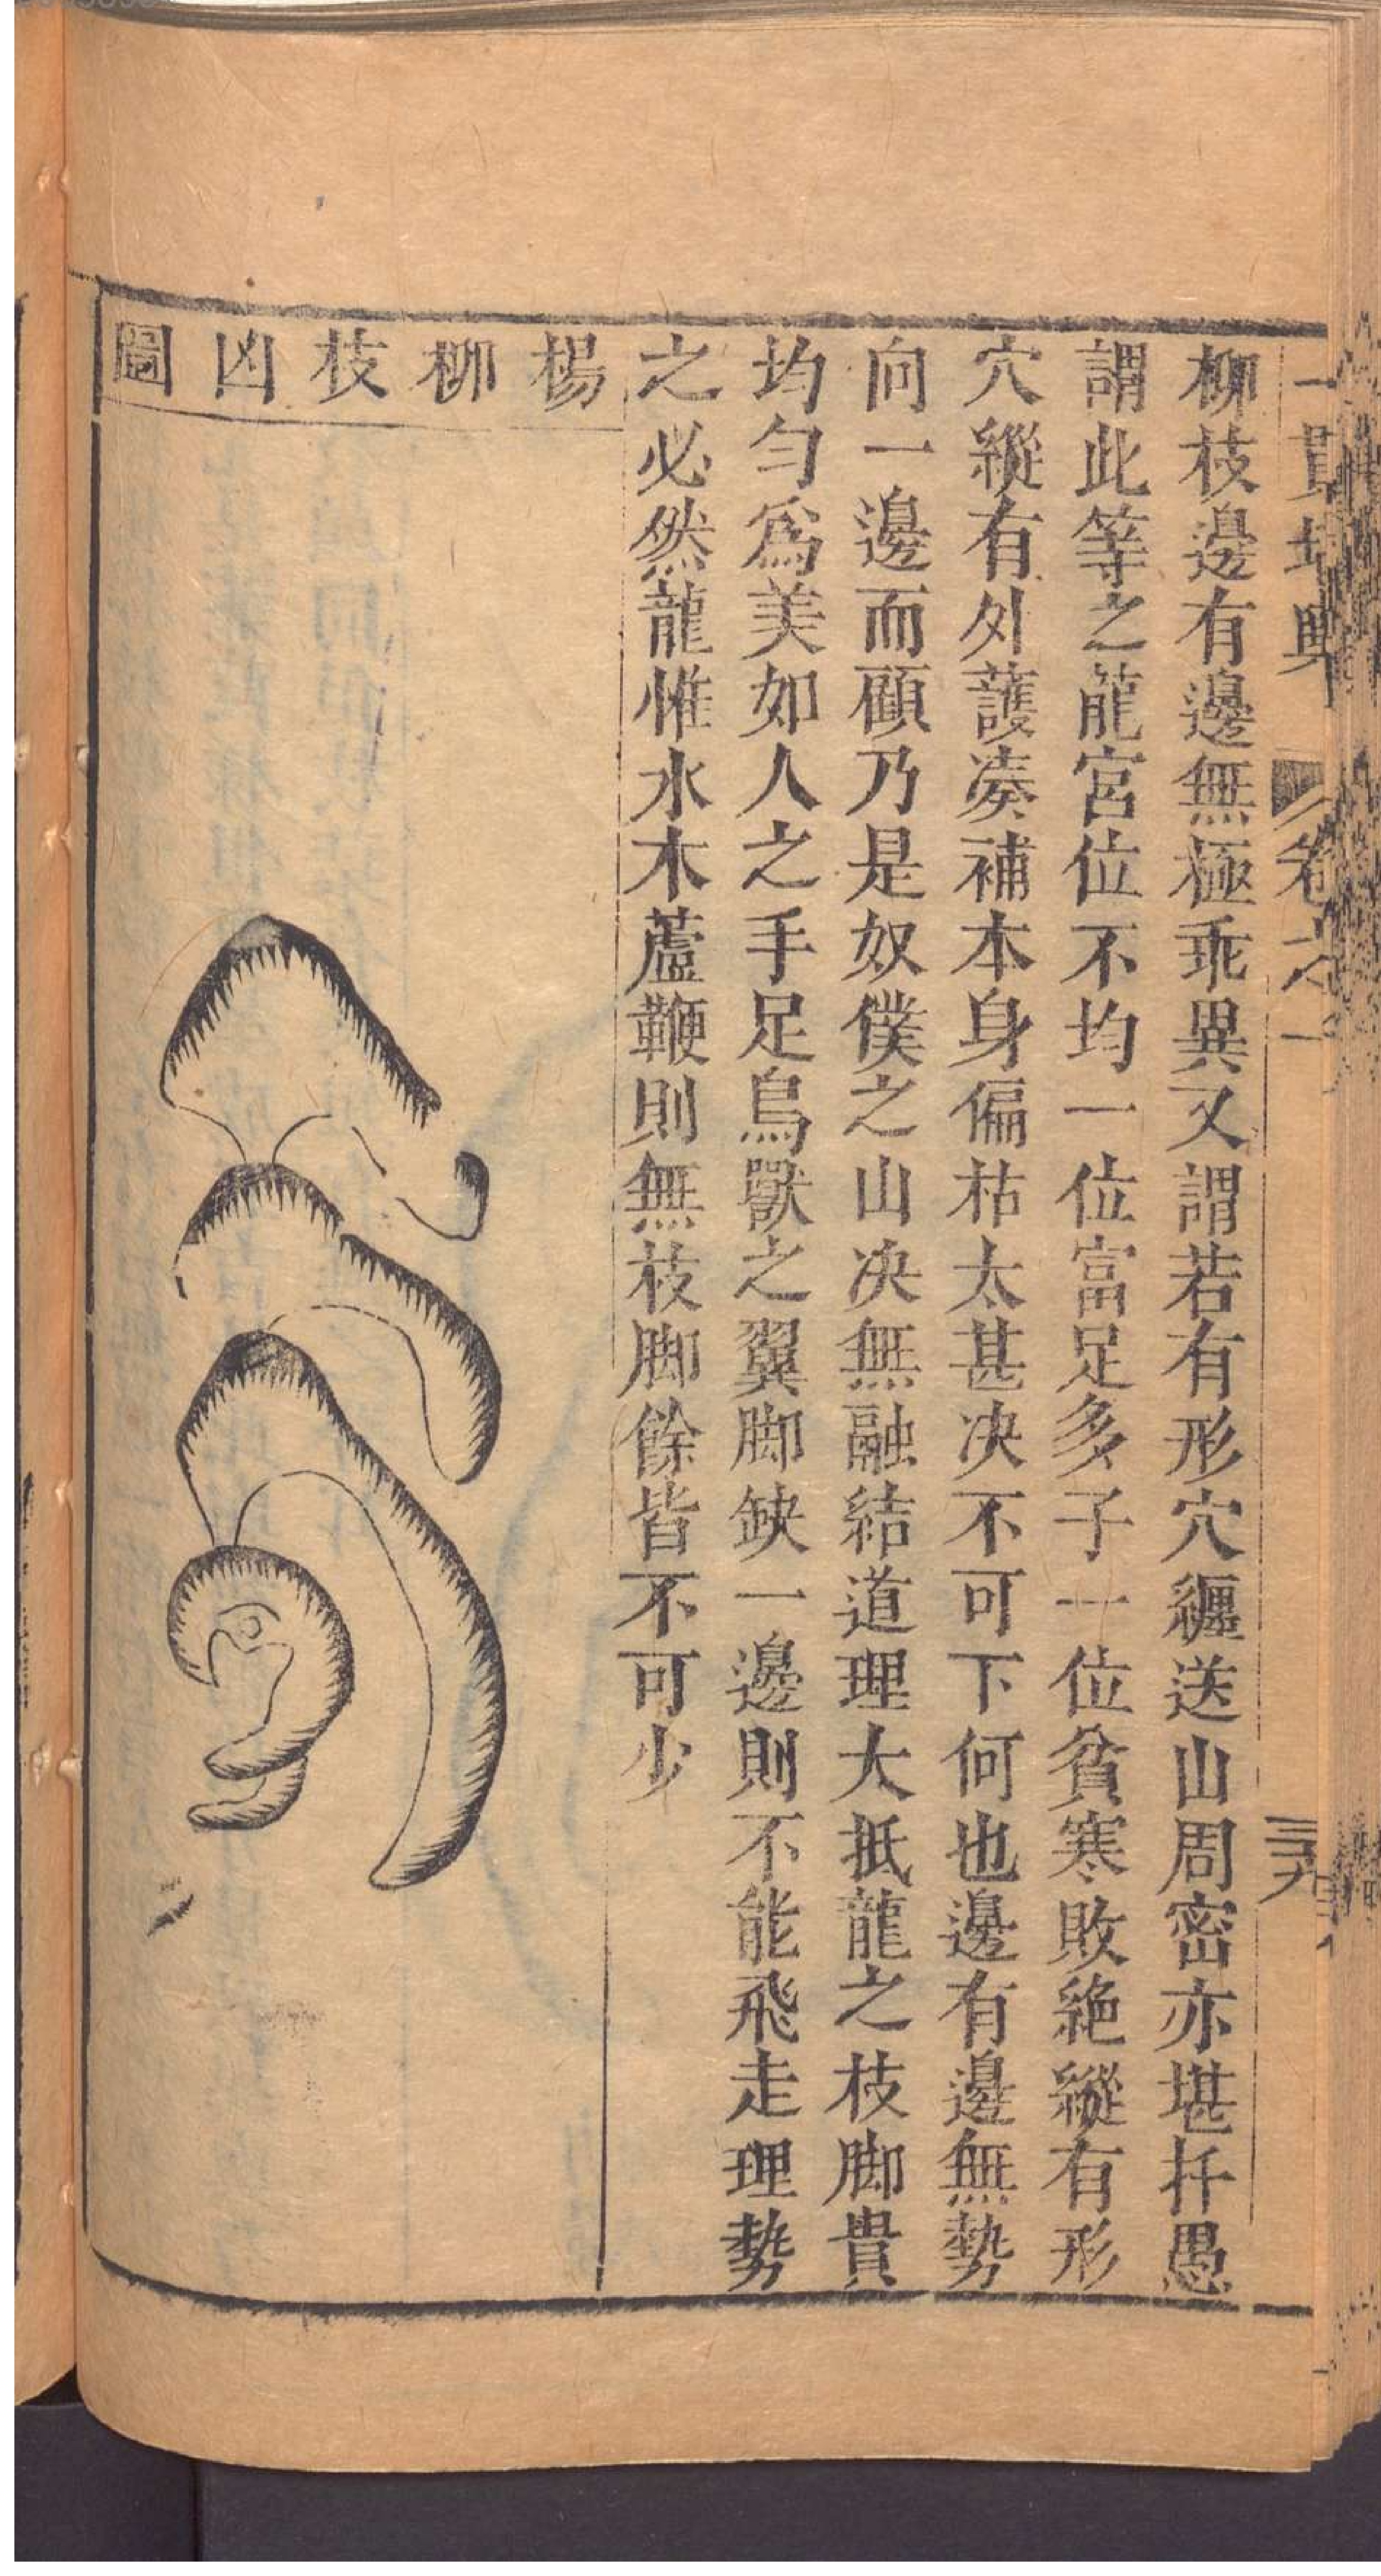 一貫堪輿 卷六 三九
柳枝邊有邊無極乖異又謂若有形穴纏送山周密亦堪扦愚
謂此等之龍宮位不均一位富足多子一位貧寒敗絶縱有形
穴縱有外護凑補本身偏枯太甚决不可下何也邊有邊無勢
向一邊而顧乃是奴僕之山决無融結道理大抵龍之枝脚貴
均勻爲美如人之手足鳥獸之翼脚缺一邊則不能飛走理勢
之必然龍惟水木蘆鞭則無枝脚餘皆不可少
楊柳枝凶圖